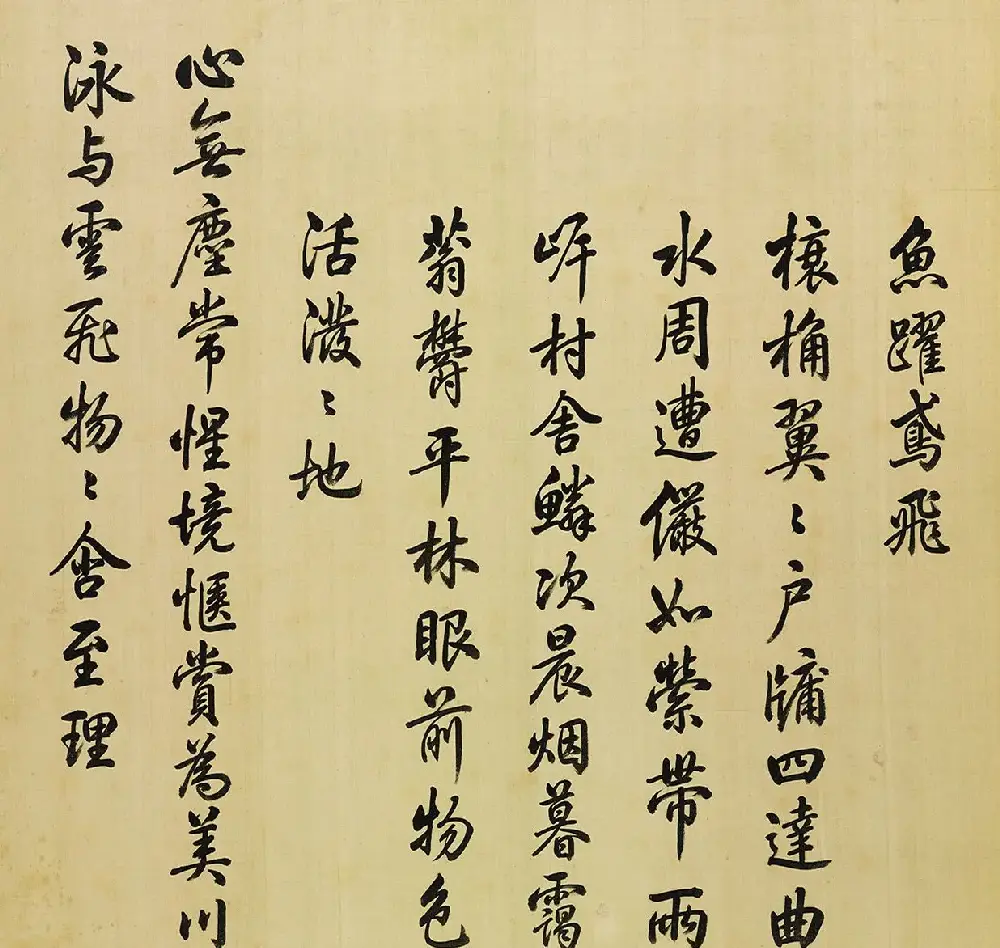 魚躍鳶飛
榱桷翼〻户牖四達曲
水周遭儼如縈帶兩
岸村舍鱗次晨烟暮靄
蓊欝平林眼前物色
活潑〻地
心無塵常惺境愜賞為美川
泳与雲飛物〻含至理